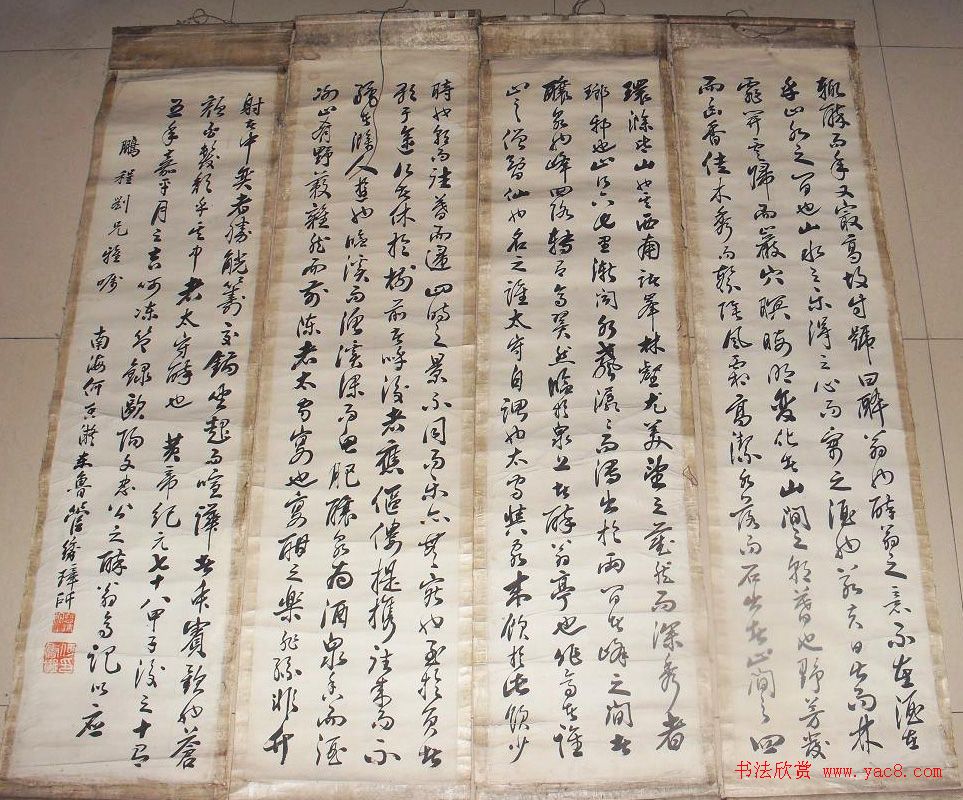 環滁皆山也其西南諸峯林壑尤美望之蔚然而深秀者
瑯邪也山行六七里漸聞水聲潺潺而瀉出於兩峰之間者
釀泉也峰回路轉有亭翼然臨於泉上者醉翁亭也作亭者誰
山之僧智仙也名之誰太守自謂也太守與客來飲於此飲少
輒醉而年又最高故自號曰醉翁也醉翁之意不在酒在
乎山水之間也山水之樂得之心而寓之酒也若夫日出而林
霏開雲歸而巖穴暝晦明變化者山間之朝暮也野芳發
而幽香佳木秀而繁陰風霜高潔水落而石出者山間之四
時也朝而往暮而還四時之景不同而樂亦無窮也至於負者
歌于塗行者休於樹前者呼後者應傴僂提攜往來而不
絕者滁人遊也臨溪而漁溪深而魚肥釀泉為酒泉香而酒
洌山肴野蔌雜然而前陳者太守宴也宴酣之樂非絲非竹
射者中奕者勝觥籌交錯坐起而諠譁者衆賓歡也蒼
顏白髮頹乎其中者太守醉也 黃帝紀元七十八甲子後之十有
五年嘉平月之吉呵凍筆錄歐陽文忠公之醉翁亭記以應
鵬程劉兄雅囑
南海何 東魯管
书法欣赏 www.yac8.com